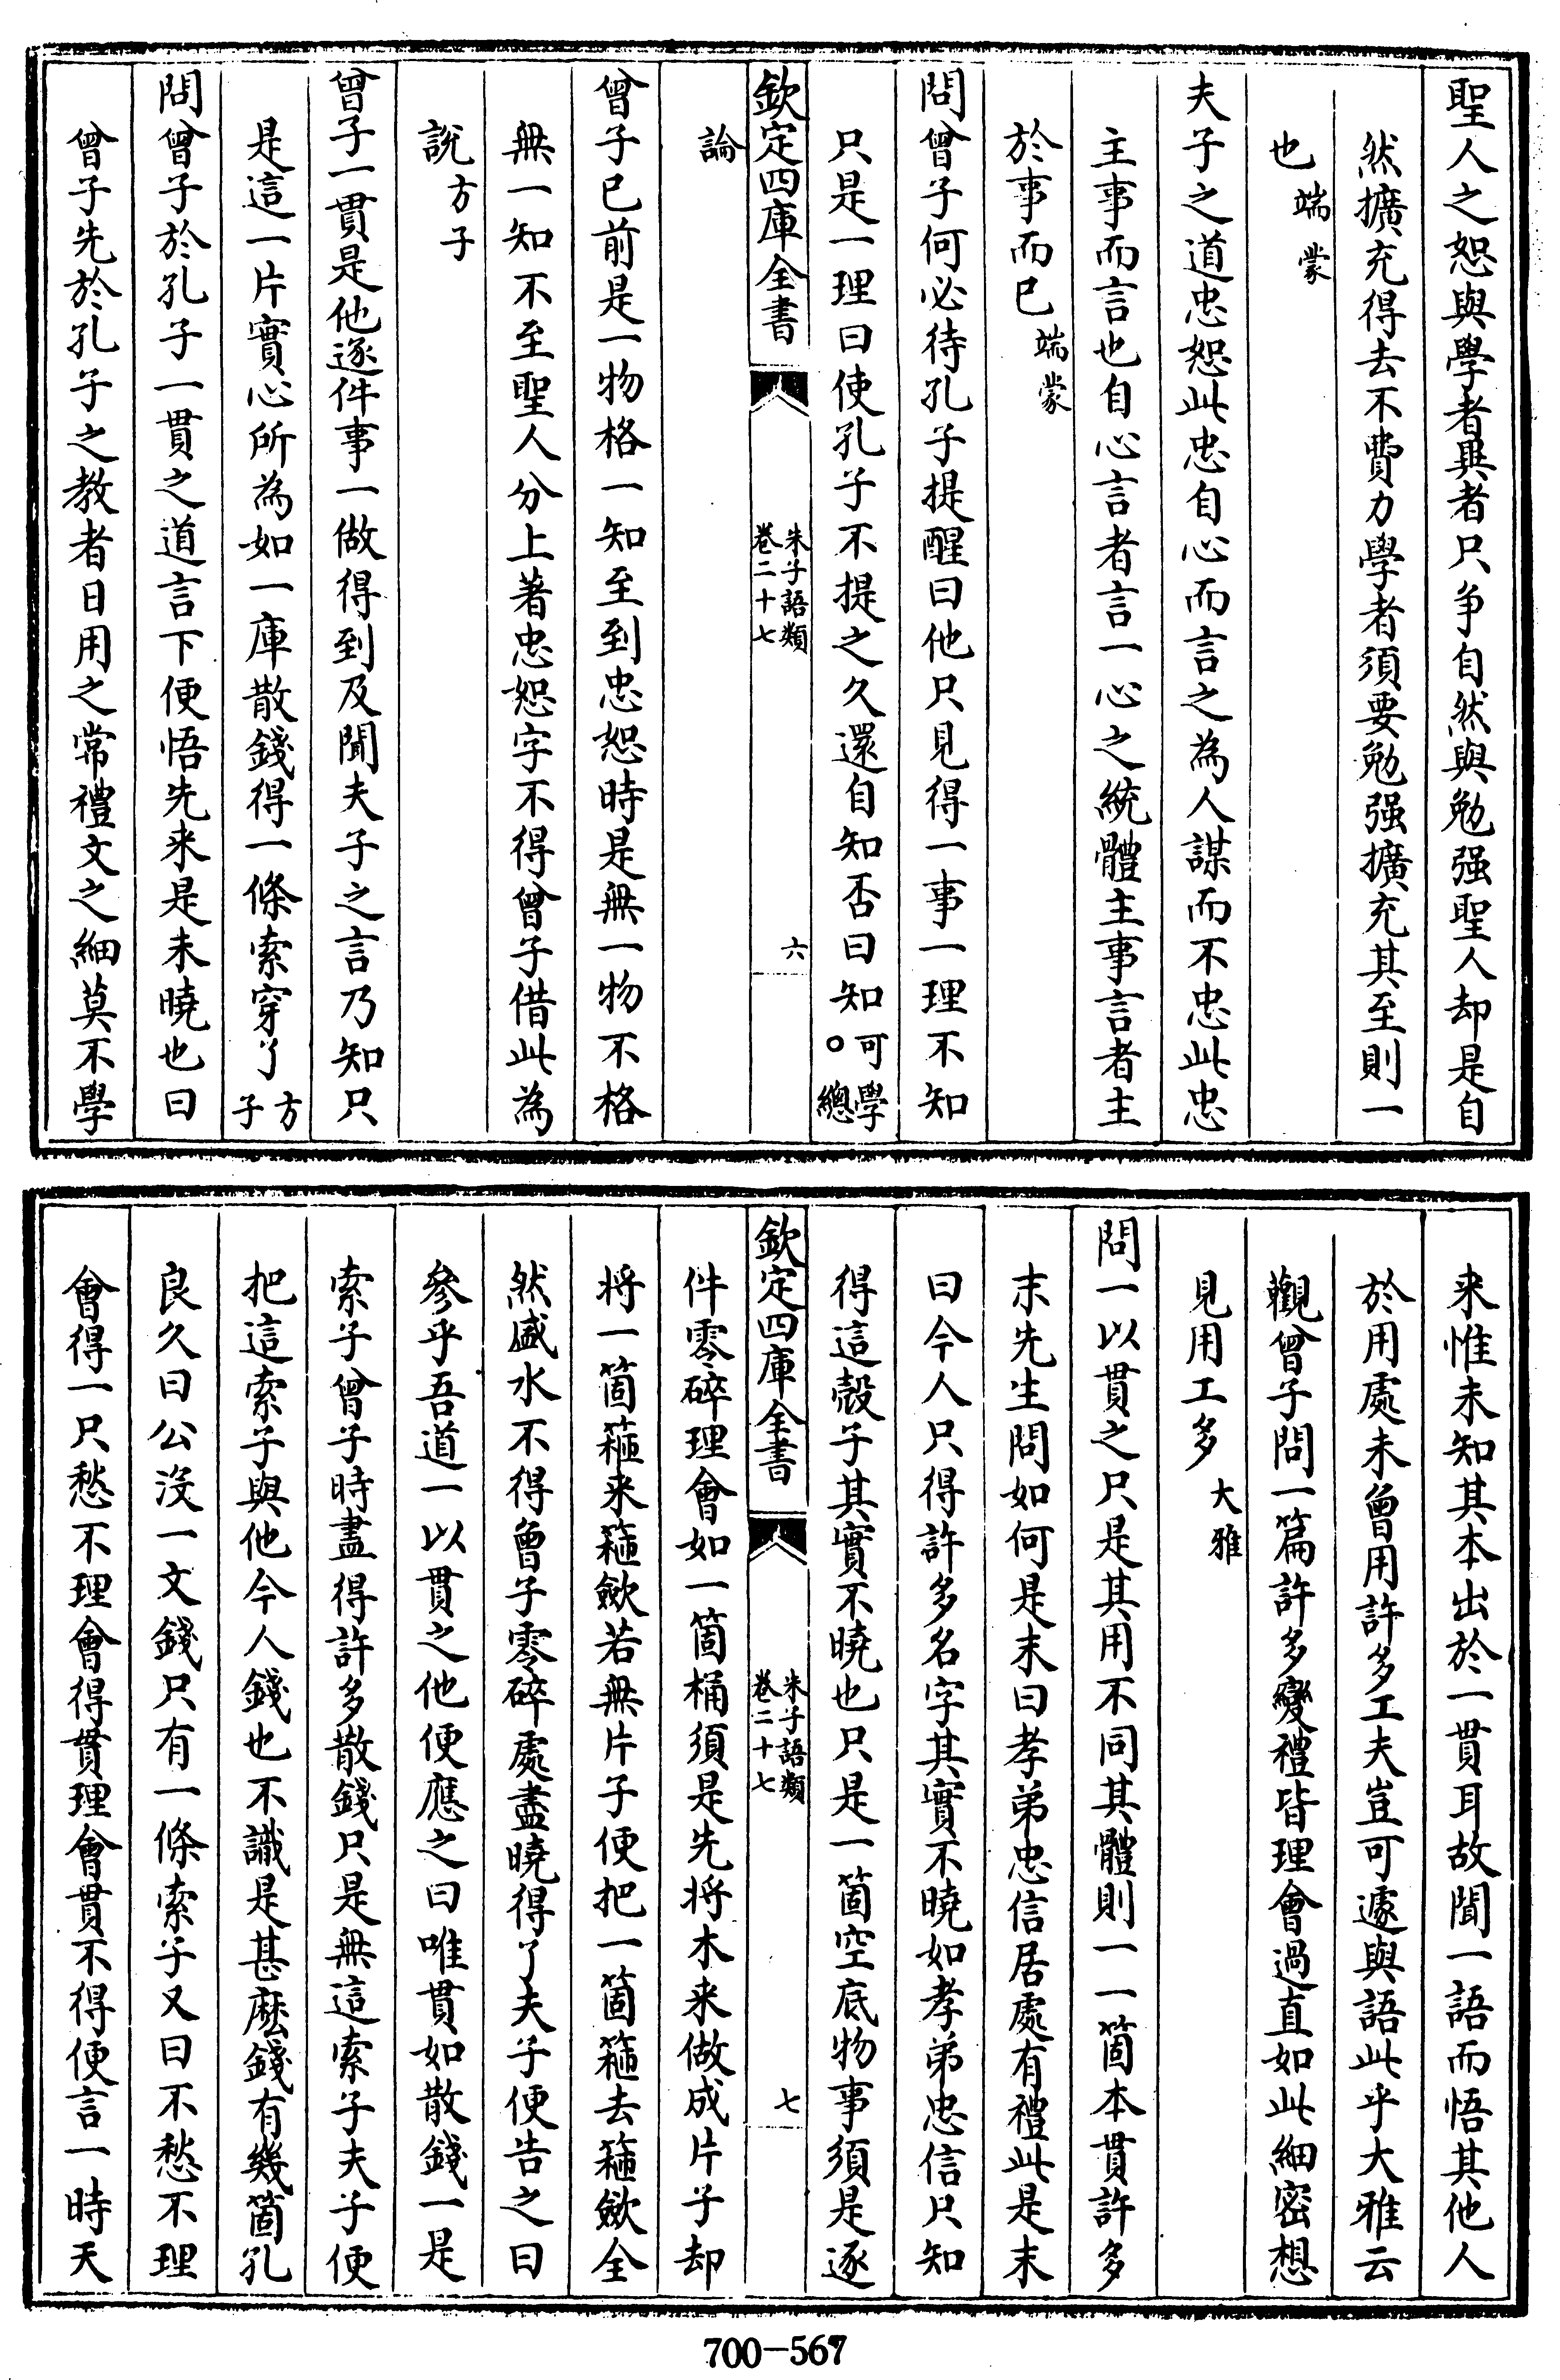 聖人之恕與學者異者只争自然與勉强聖人却是自
然擴充得去不費力學者須要勉强擴充其至則一
也端蒙
夫子之道忠恕此忠自心而言之為人謀而不忠此忠
主事而言也自心言者言一心之統體主事言者主
於事而已端蒙
問曾子何必待孔子提醒曰他只見得一事一理不知
只是一理曰使孔子不提之久還自知否曰知可學○總
欽定四庫全書
朱子語類
卷二十七
六
論
曾子已前是一物格一知至到忠恕時是無一物不格
無一知不至聖人分上著忠恕字不得曾子借此為
說方子
曾子一貫是他逐件事一做得到及聞夫子之言乃知只
是這一片實心所為如一庫散錢得一條索穿了方子
問曾子於孔子一貫之道言下便悟先来是未曉也曰
曾子先於孔子之教者日用之常禮文之細莫不學
来惟未知其本出於一貫耳故聞一語而悟其他人
於用處未曾用許多工夫豈可遽與語此乎大雅云
觀曾子問一篇許多變禮皆理會過直如此細密想
見用工多大雅
問一以貫之只是其用不同其體則一一箇本貫許多
末先生問如何是末曰孝弟忠信居處有禮此是末
曰今人只得許多名字其實不曉如孝弟忠信只知
得這殼子其實不曉也只是一箇空底物事須是逐
欽定四庫全書
朱子語類
卷二十七
七
件零碎理會如一箇桶須是先將木来做成片子却
將一箇箍来箍歛若無片子便把一箇箍去箍歛全
然盛水不得曾子零碎處盡曉得了夫子便告之曰
參乎吾道一以貫之他便應之曰唯貫如散錢一是
索子曾子時盡得許多散錢只是無這索子夫子便
把這索子與他今人錢也不識是甚麽錢有幾箇孔
良久曰公沒一文錢只有一條索子又曰不愁不理
會得一只愁不理會得貫理會貫不得便言一時天
700-567